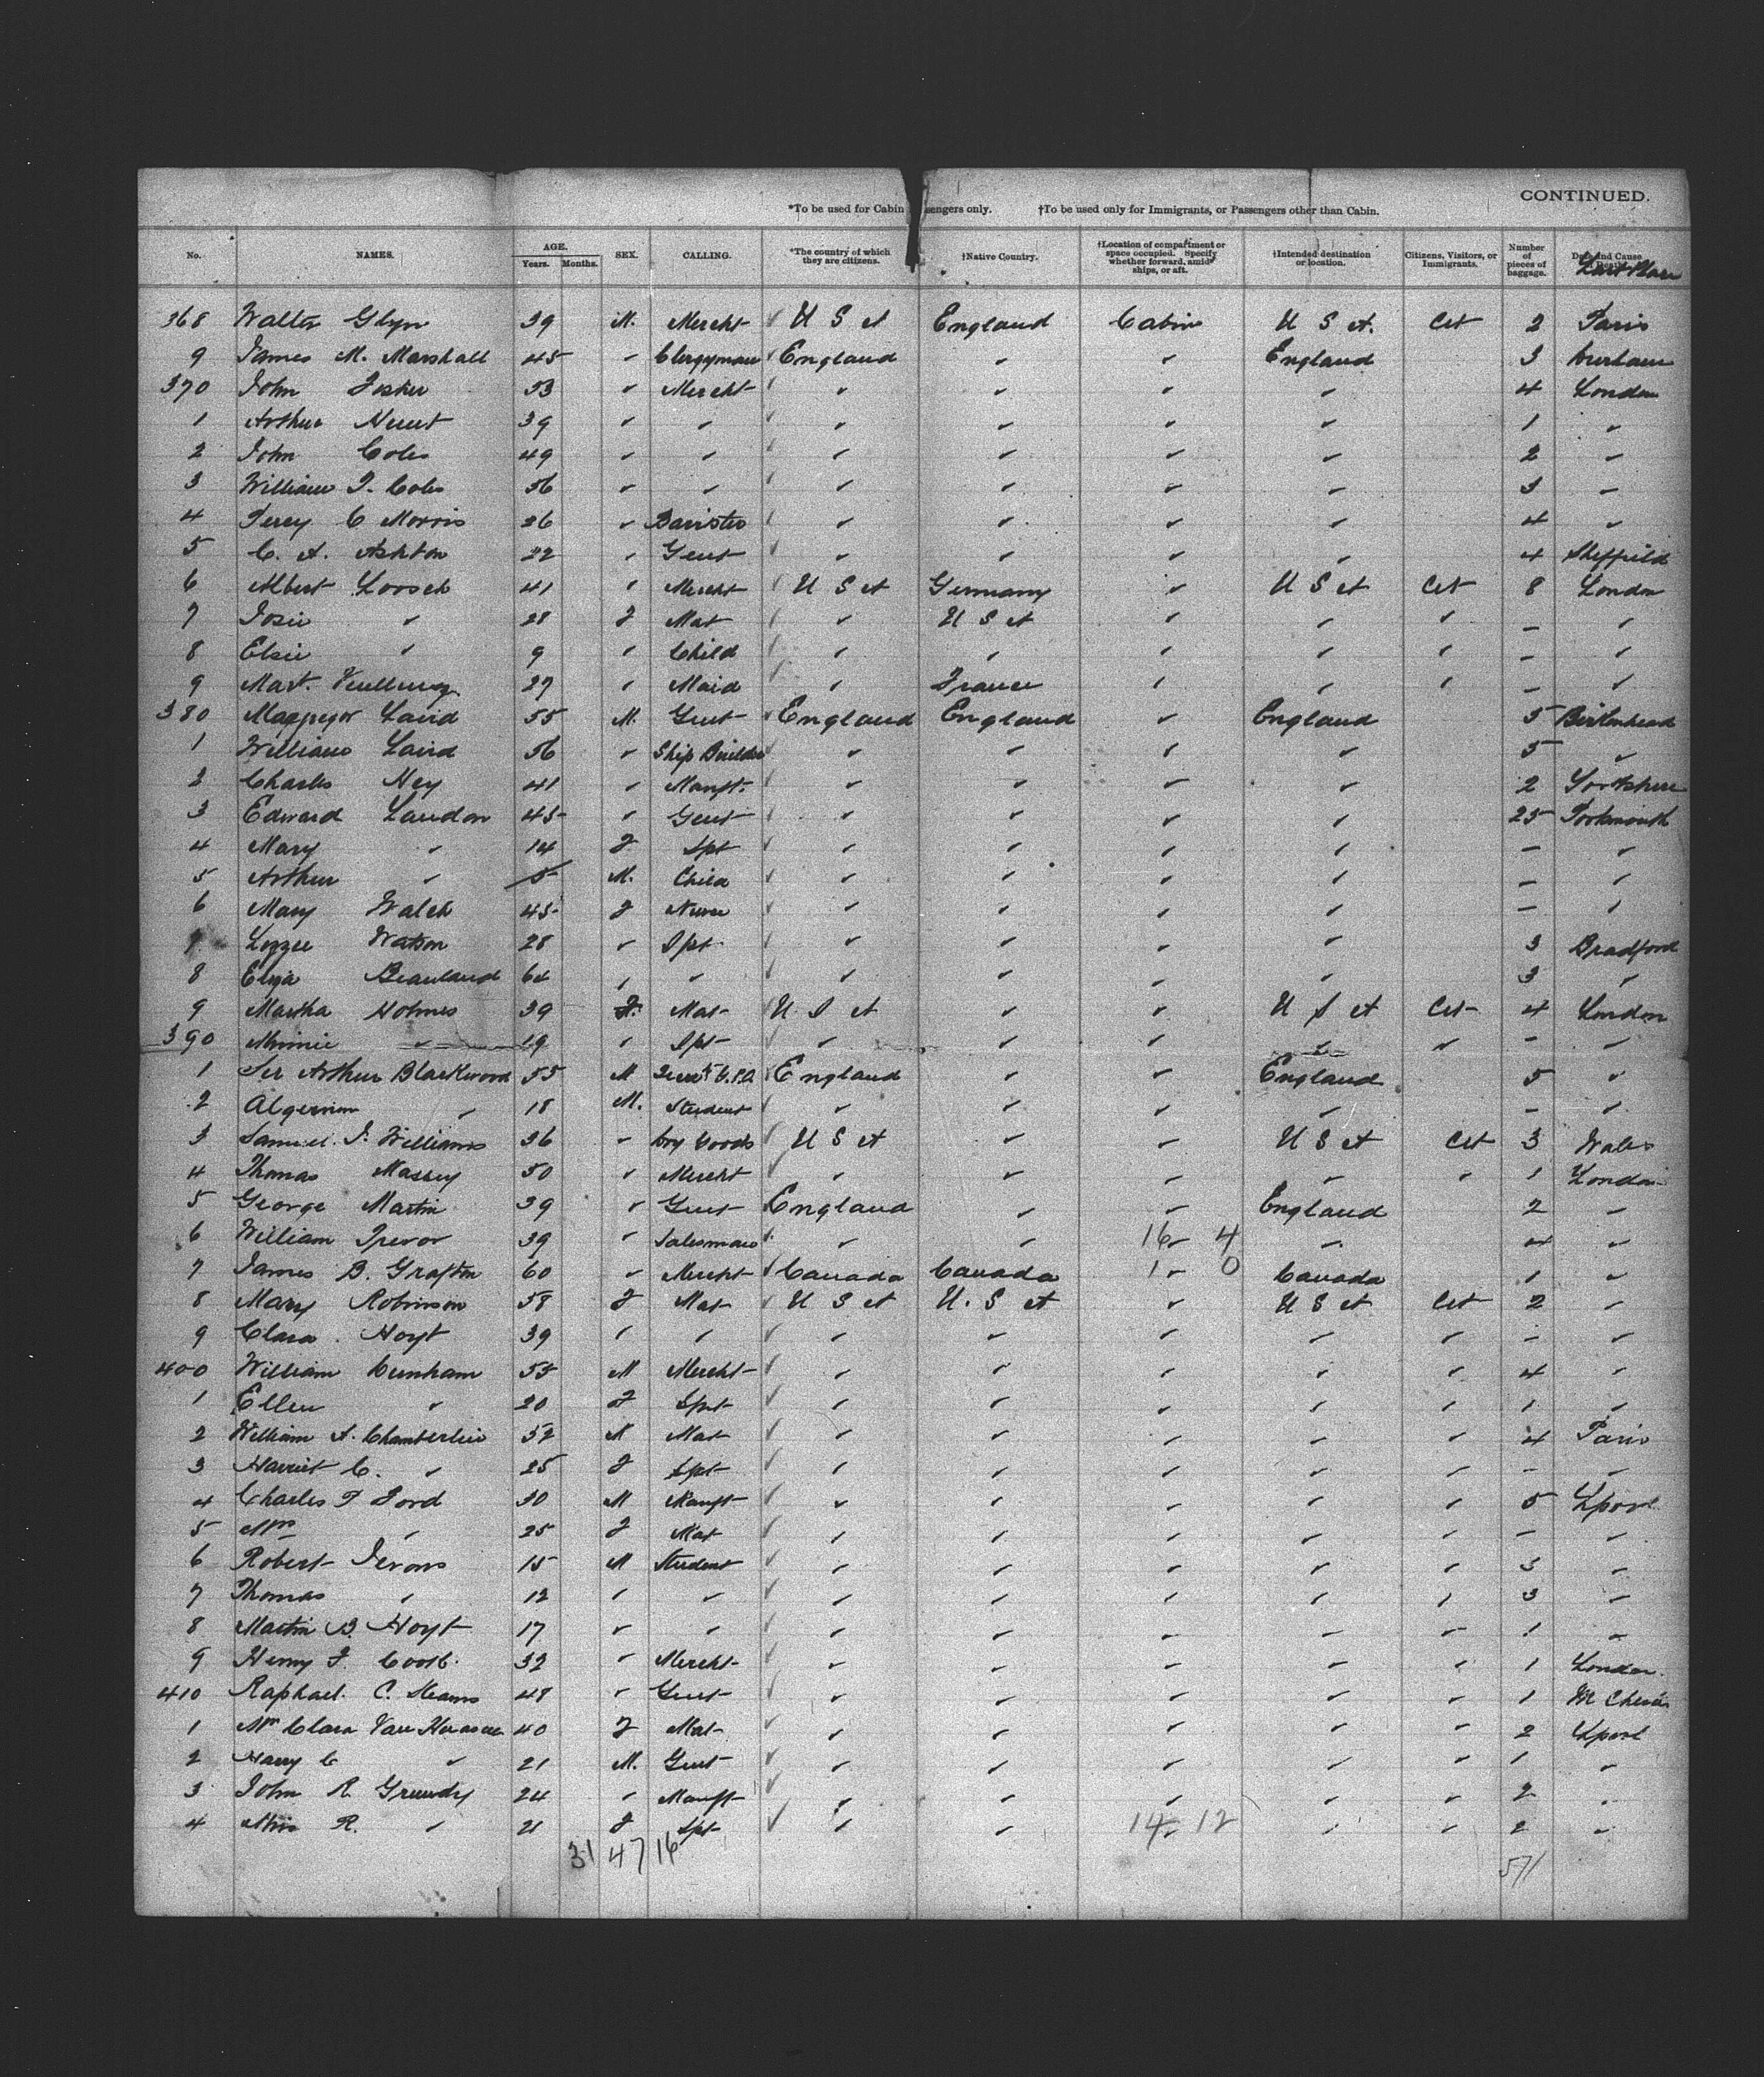 CONTINUED.
*To be used for Cabin sengers only. †To be used only for Immigrants, or Passengers other than Cabin.
No. NAMES. AGE. Years. Months. SEX. CALLING. *The country of which they are citizens. †Native Country. †Location of compartment or space occupied. Specify whether forward, amidships, or aft. †Intended destination or location. Citizens, Visitors, or Immigrants. Number of pieces of baggage. Date and Cause
368 Walter Glyn 39 M. Mercht U S A England Cabin U S A. Cit 2 Paris
9 James M. Marshall 45 " Clergyman England " " England 3 Durham
370 John Foster 53 " Mercht " " " " 4 London
1 Arthur 39 " " " " " " 1 "
2 John Coles 49 " " " " " " 2 "
3 William T. Coles 56 " " " " " " 3 "
4 Percy C Morris 26 " Barister " " " " 4 "
5 C. A. Ashton 22 " Gent " " " " 4 Sheffield
6 Albert Loosch 41 " Mercht U S A Germany " U S A Cit 8 London
7 Josie " 28 F Mat " U S A " " " - "
8 Elsie " 9 " Child " " " " " - "
9 Mart. 27 " Maid " France " " " - "
380 Macgregor Laird 55 M. Gent England England " England 5 Birkenhead
1 William Laird 56 " Ship Builder " " " " 5 "
2 Charles Hey 41 " Manft. " " " " 2 Yorkshire
3 Edward Landon 45 " Gent " " " " 25 Portsmouth
4 Mary " 14 F Spt " " " " - "
5 Arthur " 5 M. Child " " " " - "
6 Mary Walch 45 F Nurse " " " " - "
7 Lizzie Watson 28 " Spt. " " " " 3 Bradford
8 Eliza Beanland 62 " " " " " " 3 "
9 Martha Holmes 39 F. Mat U S A " " U S A Cit 4 London
390 Minnie " 19 " Spt " " " " " - "
1 Sir Arthur Blackwood 55 M Secrety G.P.O. England " " England 5 "
2 Algernon " 18 M. Student " " " " - "
3 Samuel J. Williams 36 " Dry Goods U S A " " U S A Cit 3 Wales
4 Thomas Massey 50 " Mercht " " " " " 1 London
5 George Martin 39 " Gent England " " England 2 "
6 William Trevor 39 " Salesman " " 16 - 4 " 4 "
7 James B. Grafton 60 " Mercht Canada Canada 1 - 0 Canada 1 "
8 Mary Robinson 58 F Mat U S A U. S A " U S A Cit 2 "
9 Clara Hoyt 39 " " " " " " " - "
400 William Dunham 53 M Mercht " " " " " 4 "
1 Ellen " 20 F Spt " " " " " 1 "
2 William A. Chamberlin 52 M Mat " " " " " 4 Paris
3 Harriet C. " 25 F Spt " " " " " - "
4 Charles T Ford 30 M Manft " " " " " 5 Lpool
5 Mrs " 25 F Mat " " " " " - "
6 Robert Jevons 15 M Student " " " " " 3 "
7 Thomas " 12 " " " " " " " 3 "
8 Martin B. Hoyt 17 " " " " " " " 1 "
9 Henry F. 32 " Mercht " " " " " 1 London
410 Raphael C. 48 " Gent " " " " " 1 M Chester
1 Mrs Clara Van 40 F Mat " " " " " 2 Lpool
2 Harry C " 21 M. Gent " " " " " 1 "
3 John R. Grundy 24 " Manft " " " " " 2 "
4 Miss R. " 21 F Spt " " 14 - 12 " " 2 "
31 47 16 571